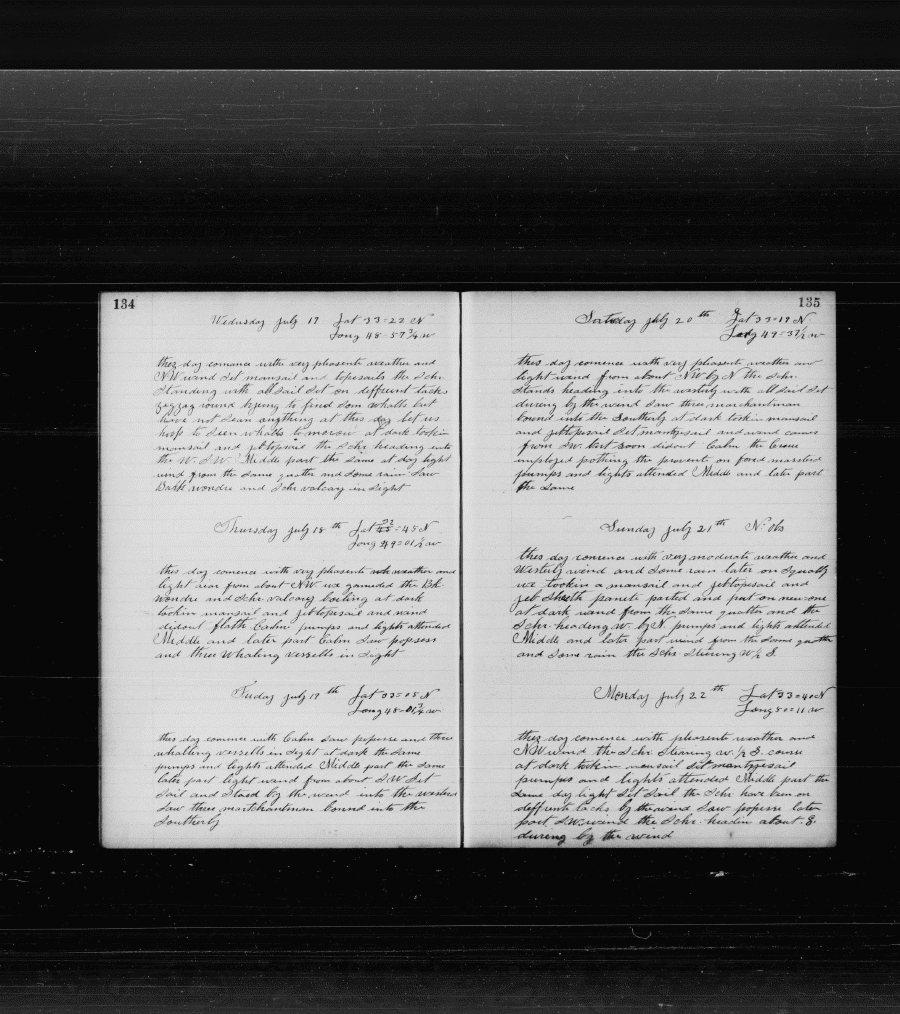 134
Wednesday July 17 Lat 33=22 N
Long 48=57¾ W
thes day comence with very pleasente weather and
NW wind Set mansail and topesails the Schr
Standing with all Sail Set on diffrent tacks
zegzag round trying to find Som whalls but
have not Sean anything at this day let us
hop to Seen whalls to morow at dark tookin
mansail and jebtopsail the Schr heading into
the W.S.W Middle part the Same at day light
wind from the Same quatter and Some rain Saw
Bark wondre and Schr valcary in Sight
Thursday July 18th Lat 33=45 N
Long 49=01½ W
this day comence with very pleasente weather and
light near from about NW we gameded the Bk
Wondre and Schr valcary boiling at dark
tookin mansail and jebtopsail and wind
didout flatk Calm pumps and lights attended
Middle and later part Calm Saw popeses
and three Whaling vesselle in Sight
Friday July 19th Lat 33=05 N
Long 48=01¾ W
this day comence with Calm Saw popeses and three
whalling vessells in Sight at dark the Same
pumps and lights attended Middle part the Same
later part light wind from about SW Set
Sail and Staed by the wind into the westerd
Saw three martchantman bound into the
Southerly
135
Saturday July 20th Lat 33=19 N
Long 49=37½ W
thes day comence with very pleasente weather and
light wind from about NW by N the Schr
Stands heading into the westerly with all Sail Set
dureng by the wind Saw three marchantman
bound into the Southerly at dark tookin mansail
and jebtopsail Set mantzgesail and wind comes
from SW but soon didout Calm the Creue
imployed potting the prevent on fored massted
pumps and lights attended Middle and later part
the Same
Sunday July 21th No obs
thes day comence with very moderate weather and
Westerly wind and Some rain later on Squally
we tookin a mansail and jebtopsail and
jeb Sheeth panete parted and put on new one
at dark wind from the Same quatter and the
Schr heading W. by N. pumps and lights attended
Middle and later part wind from the Same quatter
and Some rain the Schr Stering W ½ S.
Monday July 22th Lat 33=40 N
Long 50=11 W
thes day comence with pleasente weather and
NW wind the Schr Stearing W. ½ S. course
at dark tookin mansail Set mantzgesail
pumps and lights attended Middle part the
Same day light Set Sail the Schr have ben on
diffrente tacks by the wind Saw popese later
part SW. wind the Schr headin about S.
dureng by the wind